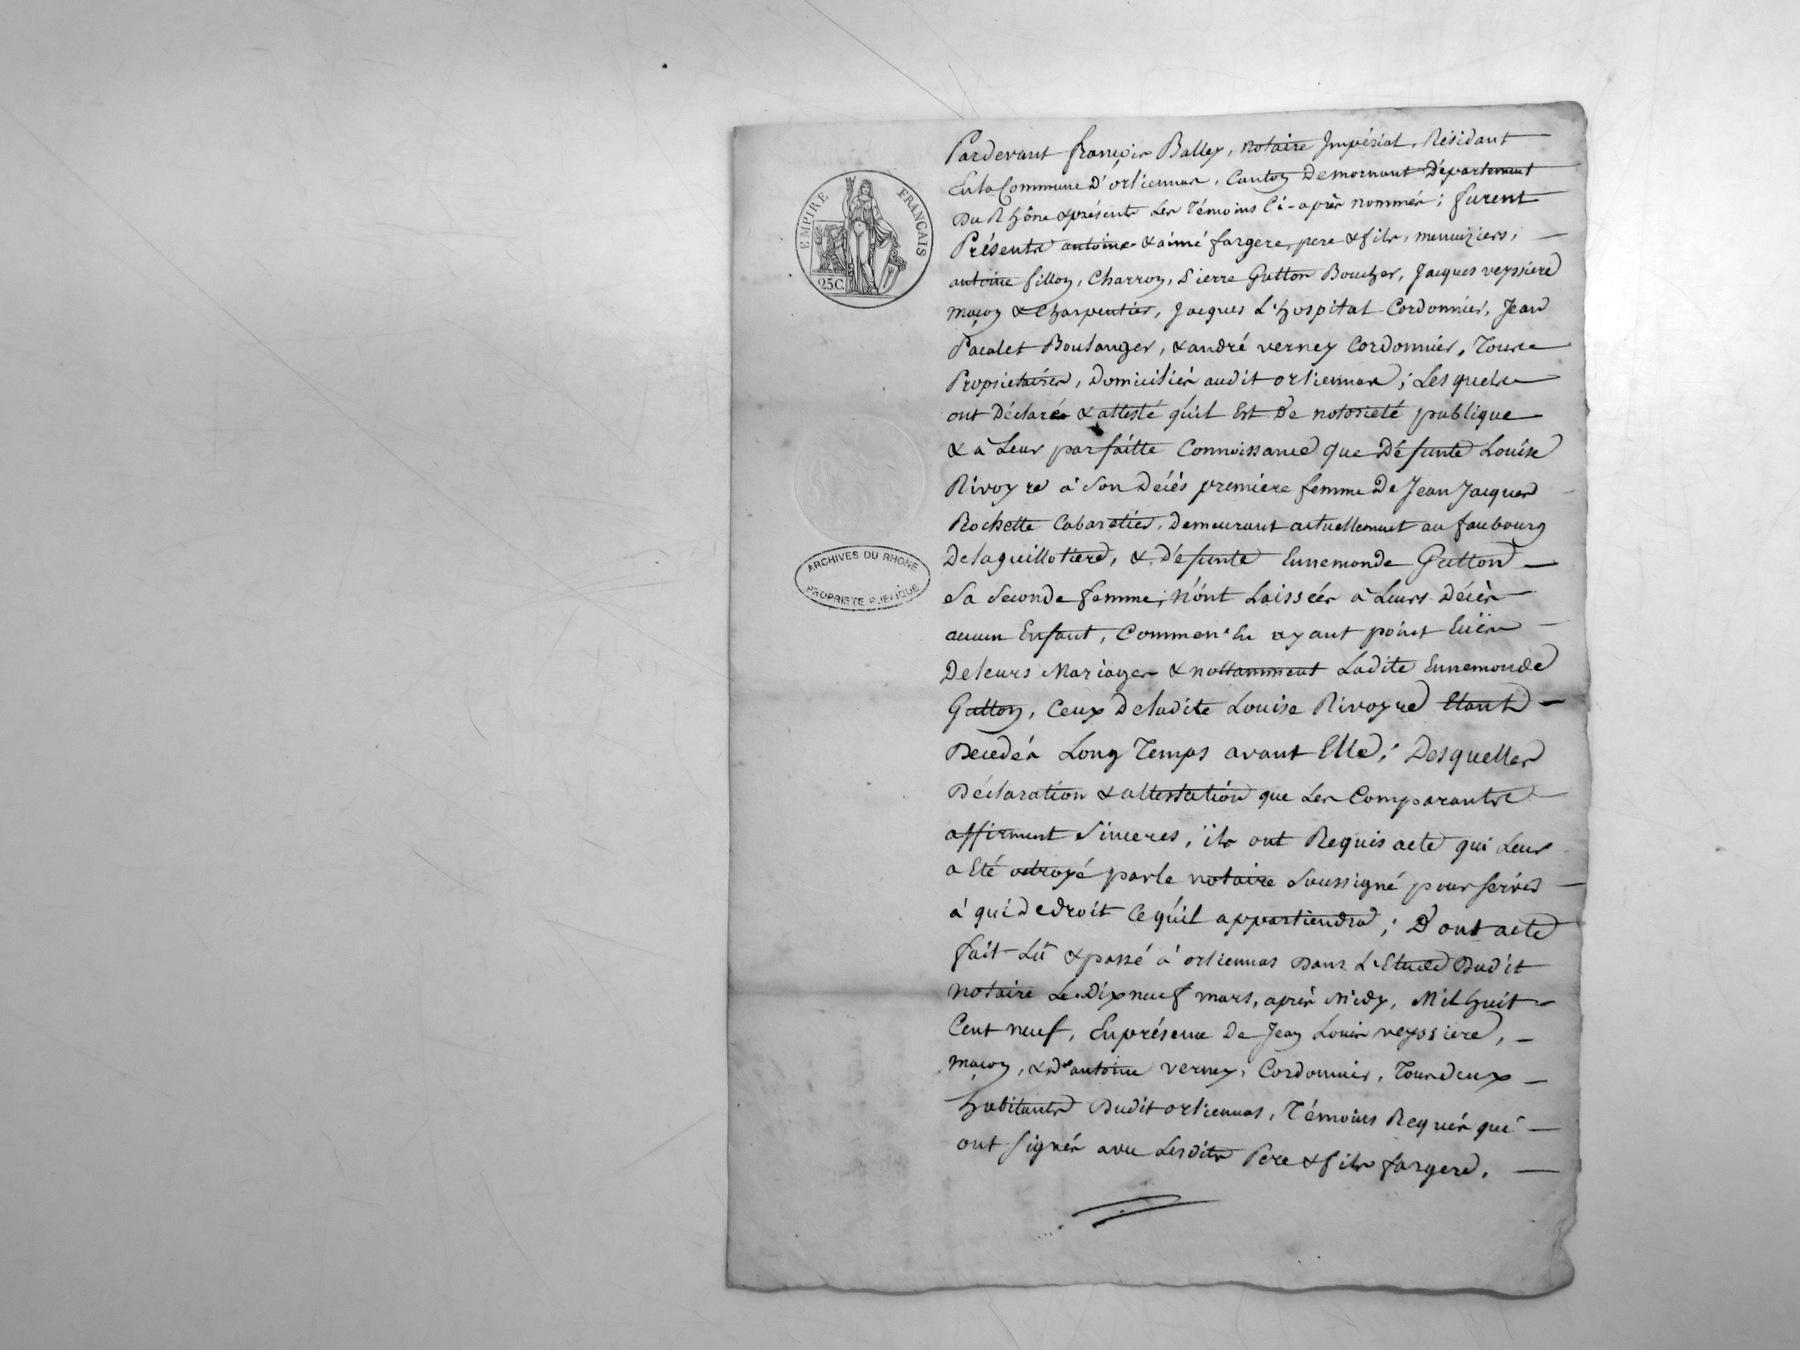 EMPIRE FRANÇAIS
25C.
ARCHIVES DU RHÔNE
PROPRIÉTÉ PUBLIQUE
Pardevant françois Balley, notaire Jmpérial, Résidant
En la Commune D'orliennas, Canton Demornant Département
Du Rhône & présents Les Témoins Ci-après nommés ; furent
Présents antoine & aimé fargere, pere & fils, menuiziers,
antoine fillon, Charron, Pierre Gutton Boucher, Jacques veyssiere
maçon & Charpentier, Jacques L'hospital Cordonnier, Jean
Pacalet Boulanger, & andré verney Cordonnier, Tous
Propriétaires, Domiciliés audit orliennas ; Lesquels
ont Déclarés & attesté qu'il Est De notoriété publique
& à Leur parfaitte Connoissance que Défunte Louise
Rivoyre à Son Décés premiere femme De Jean Jacques
Rochette Cabaretier, Demeurant actuellement au faubourg
Delaguillotiere, & Défunte Ennemonde Gutton
Sa Seconde femme, N'ont Laissées à Leurs Décès
aucun Enfant, Comme n'En ayant point Eües
De leurs Mariages & nottamment Ladite Ennemonde
Gutton, Ceux De ladite Louise Rivoyre Etant
Decedés Long Temps avant Elle ; Desquelles
Déclaration & attestation que Les Comparants
affirment Sinceres, ils ont Requis acte qui Leur
a Eté octroyé par le notaire Soussigné pour servir
à qui De droit Ce qu'il appartiendra ; D'ont acte
fait Lû & passé à orliennas Dans L'Etude Dudit
notaire Le Dix neuf mars, après Midy, Mil huit
Cent neuf, En présence De Jean Louis veyssiere,
maçon, & d'antoine verney, Cordonnier, Tous deux
habitants Dudit orliennas, Témoins Requis qui
ont signés avec Lesdits Pere & fils fargere.